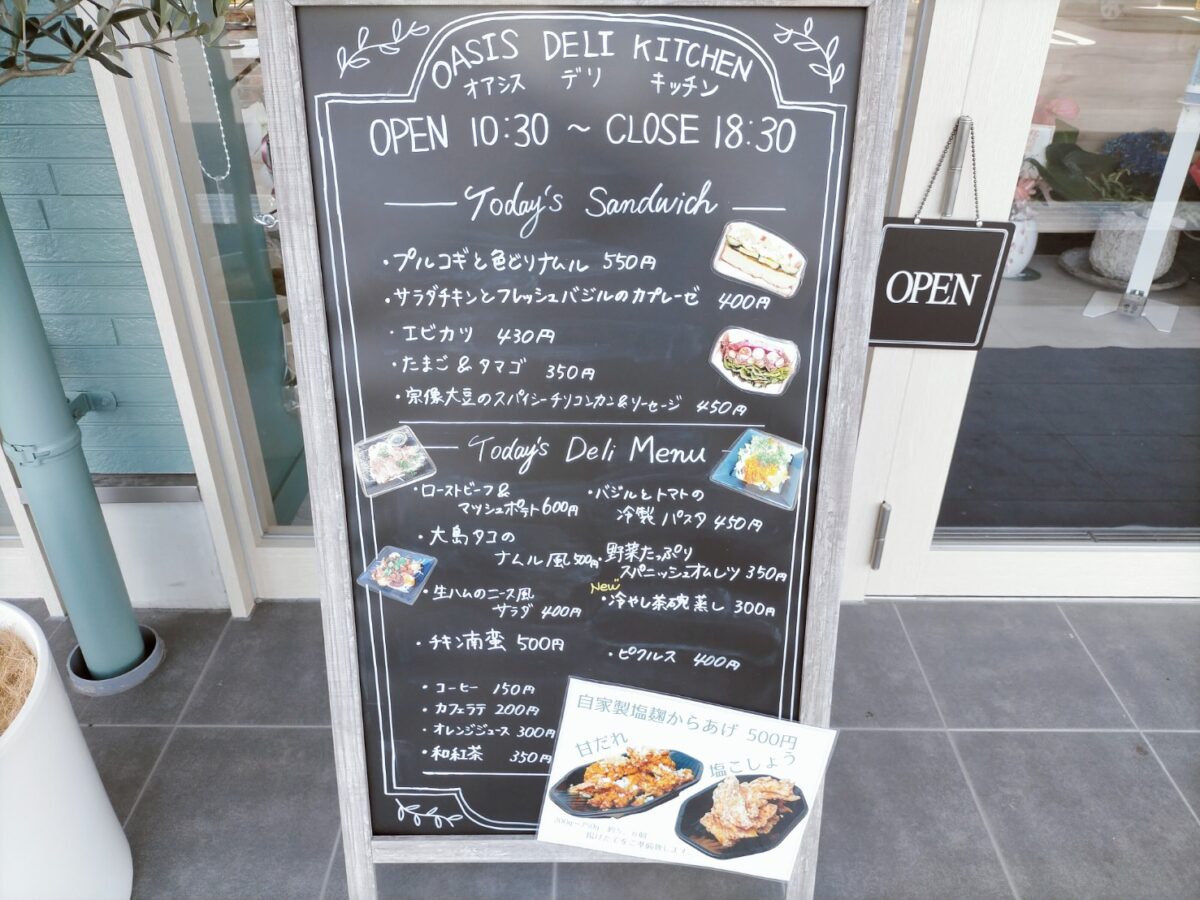 OASIS DELI KITCHEN
オアシス デリ キッチン
OPEN 10:30 ~ CLOSE 18:30
Today's Sandwich
・プルコギと色どりナムル 550円
・サラダチキンとフレッシュバジルのカプレーゼ 400円
・エビカツ 430円
・たまご&タマゴ 350円
・宗像大豆のスパイシーチリコンカン&ソーセージ 450円
Today's Deli Menu
・ローストビーフ&
マッシュポテト 600円
・大島タコの
ナムル風 500円
・生ハムのニース風
サラダ 400円
・チキン南蛮 500円
・バジルとトマトの
冷製パスタ 450円
・野菜たっぷり
スパニッシュオムレツ 350円
New
・冷やし茶碗蒸し 300円
・ピクルス 400円
・コーヒー 150円
・カフェラテ 200円
・オレンジジュース 300円
・和紅茶 350円
自家製塩麹からあげ 500円
甘だれ
塩こしょう
200g~250g 約5、6個
揚げたてをご準備致します
OPEN